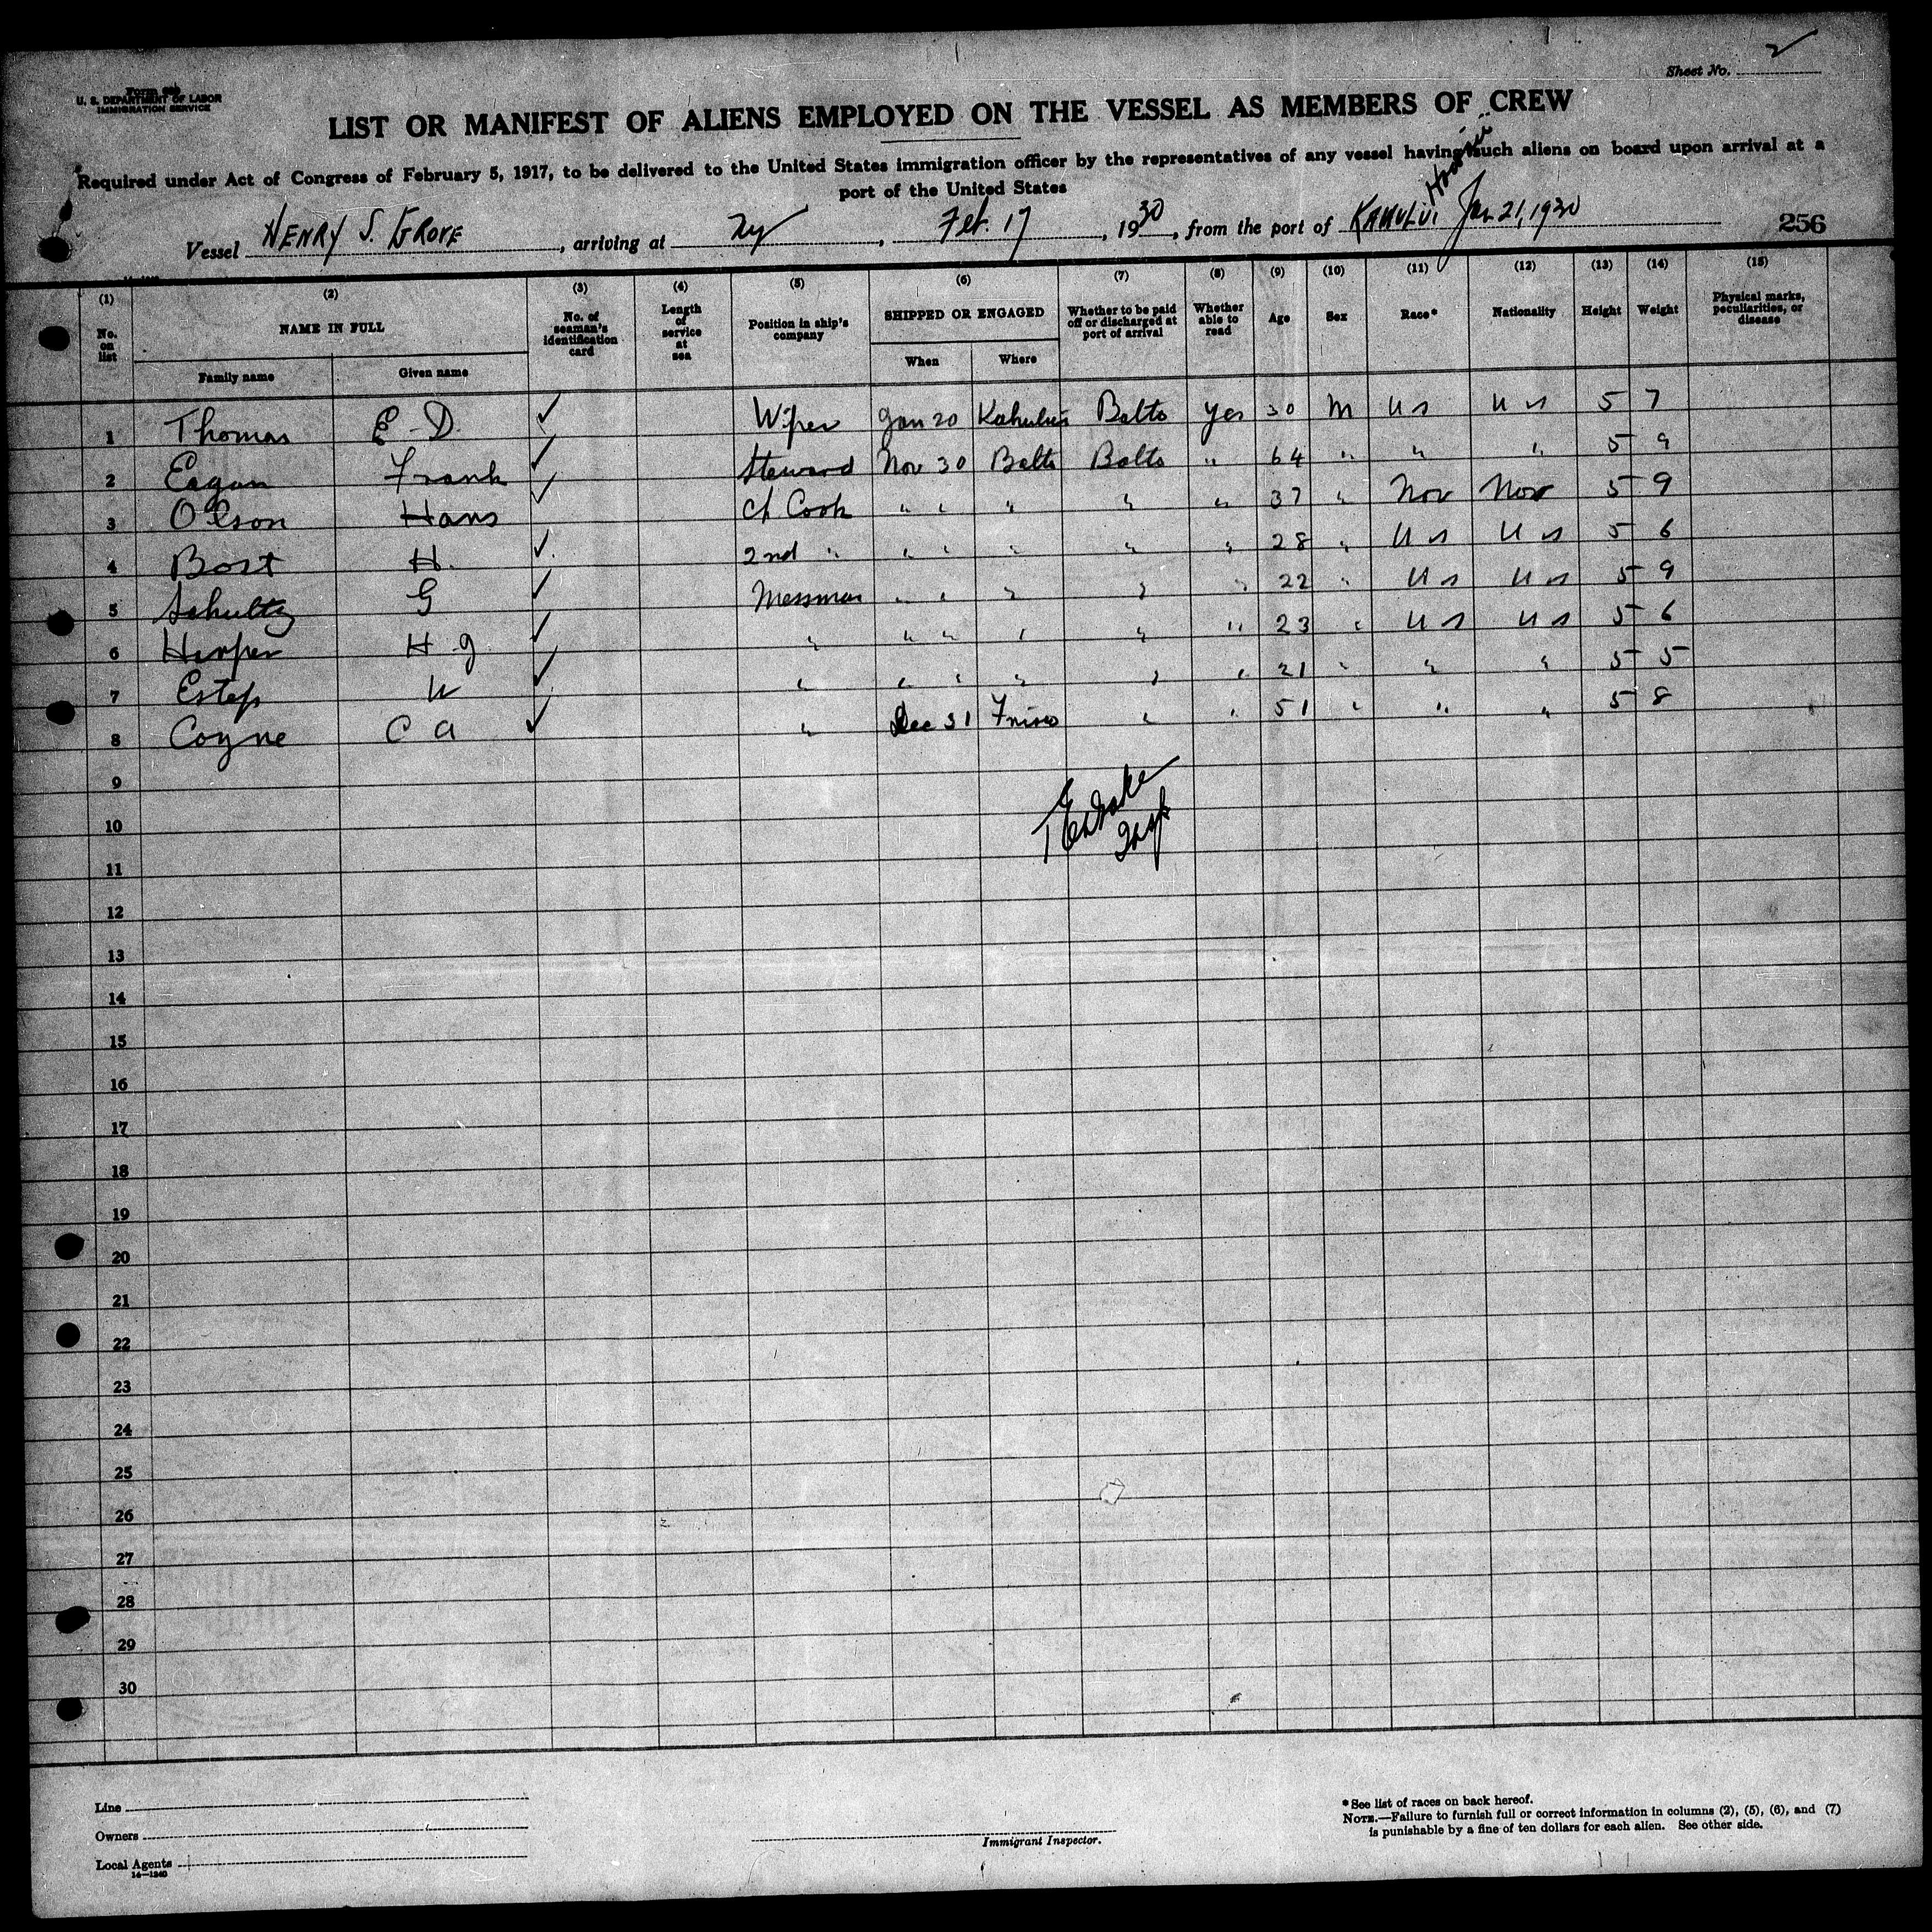 Sheet No. 2
Form 689
U. S. DEPARTMENT OF LABOR
IMMIGRATION SERVICE
LIST OR MANIFEST OF ALIENS EMPLOYED ON THE VESSEL AS MEMBERS OF CREW
Required under Act of Congress of February 5, 1917, to be delivered to the United States immigration officer by the representatives of any vessel having such aliens on board upon arrival at a
port of the United States
Vessel HENRY S. GROVE, arriving at Ny, Feb. 17, 1930, from the port of KAHULUI Jan 21, 1930
256
(1) (2) (3) (4) (5) (6) (7) (8) (9) (10) (11) (12) (13) (14) (15)
No. on list NAME IN FULL No. of seaman's identification card Length of service at sea Position in ship's company SHIPPED OR ENGAGED Whether to be paid off or discharged at port of arrival Whether able to read Age Sex Race* Nationality Height Weight Physical marks, peculiarities, or disease
Family name Given name When Where
1 Thomas E D. ✓ Wiper Jan 20 Kahului Balto Yes 30 M U S U S 5 7
2 Eagan Frank ✓ Steward Nov 30 Balto Balto " 64 " " " 5 9
3 Olson Hans ✓ Ch Cook " " " " " 37 " Nor Nor 5 9
4 Bost H. ✓ 2nd " " " " " " 28 " U S U S 5 6
5 Schultz G ✓ Messman " " " " " 22 " U S U S 5 9
6 Harper H G ✓ " " " " " " 23 " U S U S 5 6
7 Estep W ✓ " " " " " " 21 " " " 5 5
8 Coyne C A ✓ " Dec 31 Frisco " " 51 " " " 5 8
9
10
11
12
13
14
15
16
17
18
19
20
21
22
23
24
25
26
27
28
29
30
Line
Owners
Local Agents
14—1240
Immigrant Inspector.
*See list of races on back hereof.
NOTE.—Failure to furnish full or correct information in columns (2), (5), (6), and (7)
is punishable by a fine of ten dollars for each alien. See other side.